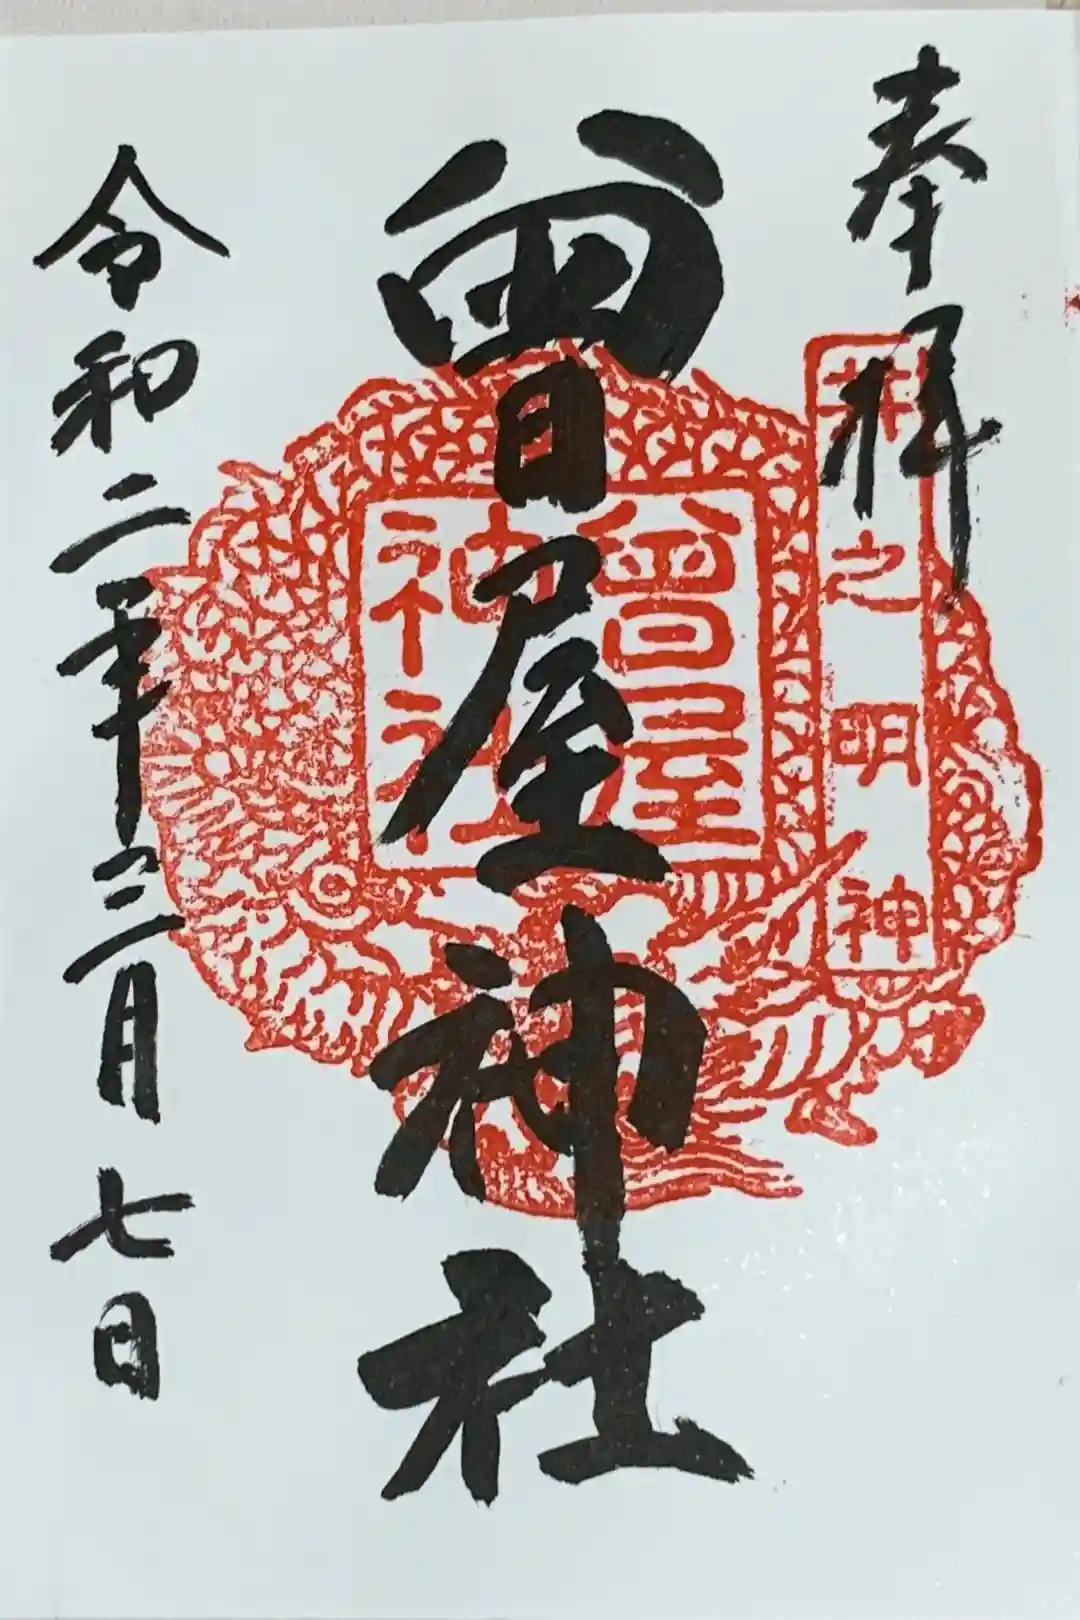 奉拝
井之明神
曾屋神社
曾屋
神社
令和二年三月七日